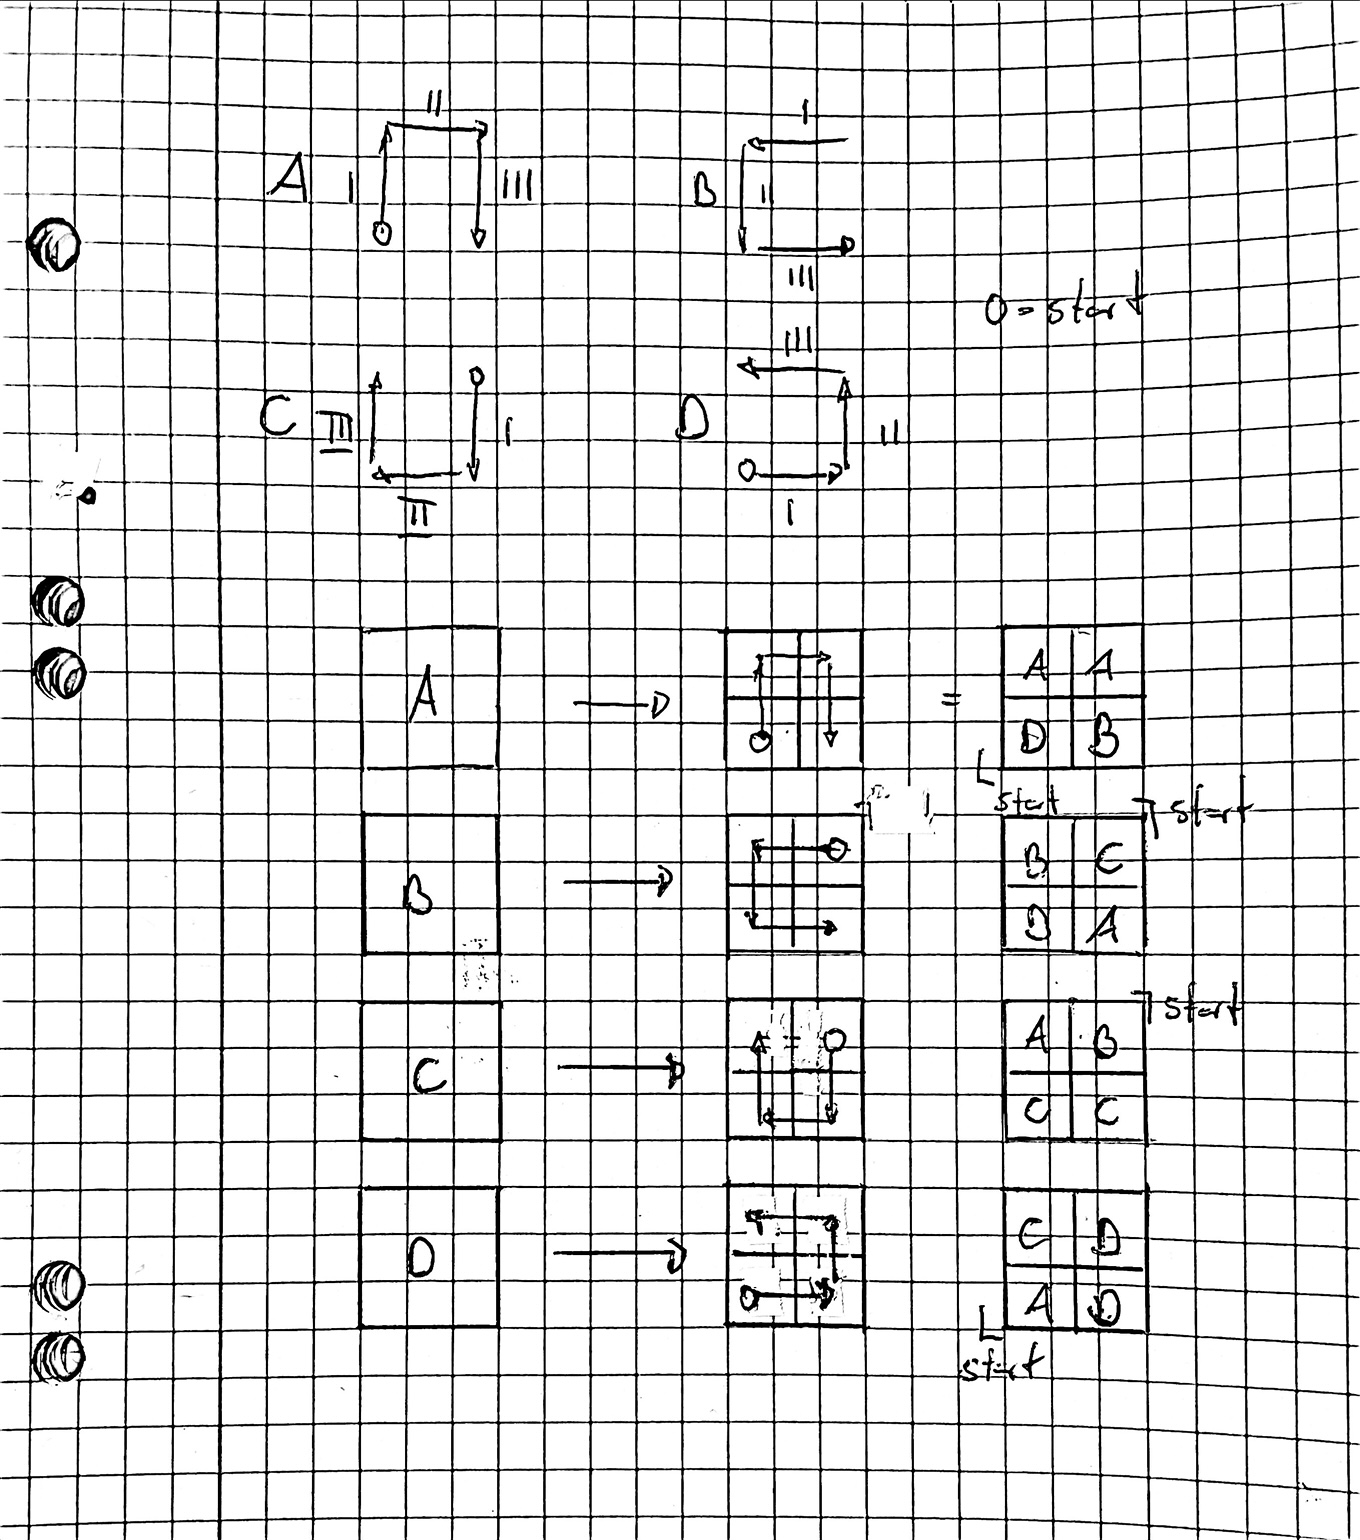 II
I
A I III
B II
III
0 = start
III
C III I
D II
II
I
A
=
A A
D B
start
start
B
B C
D A
start
C
A B
C C
D
C D
A D
start